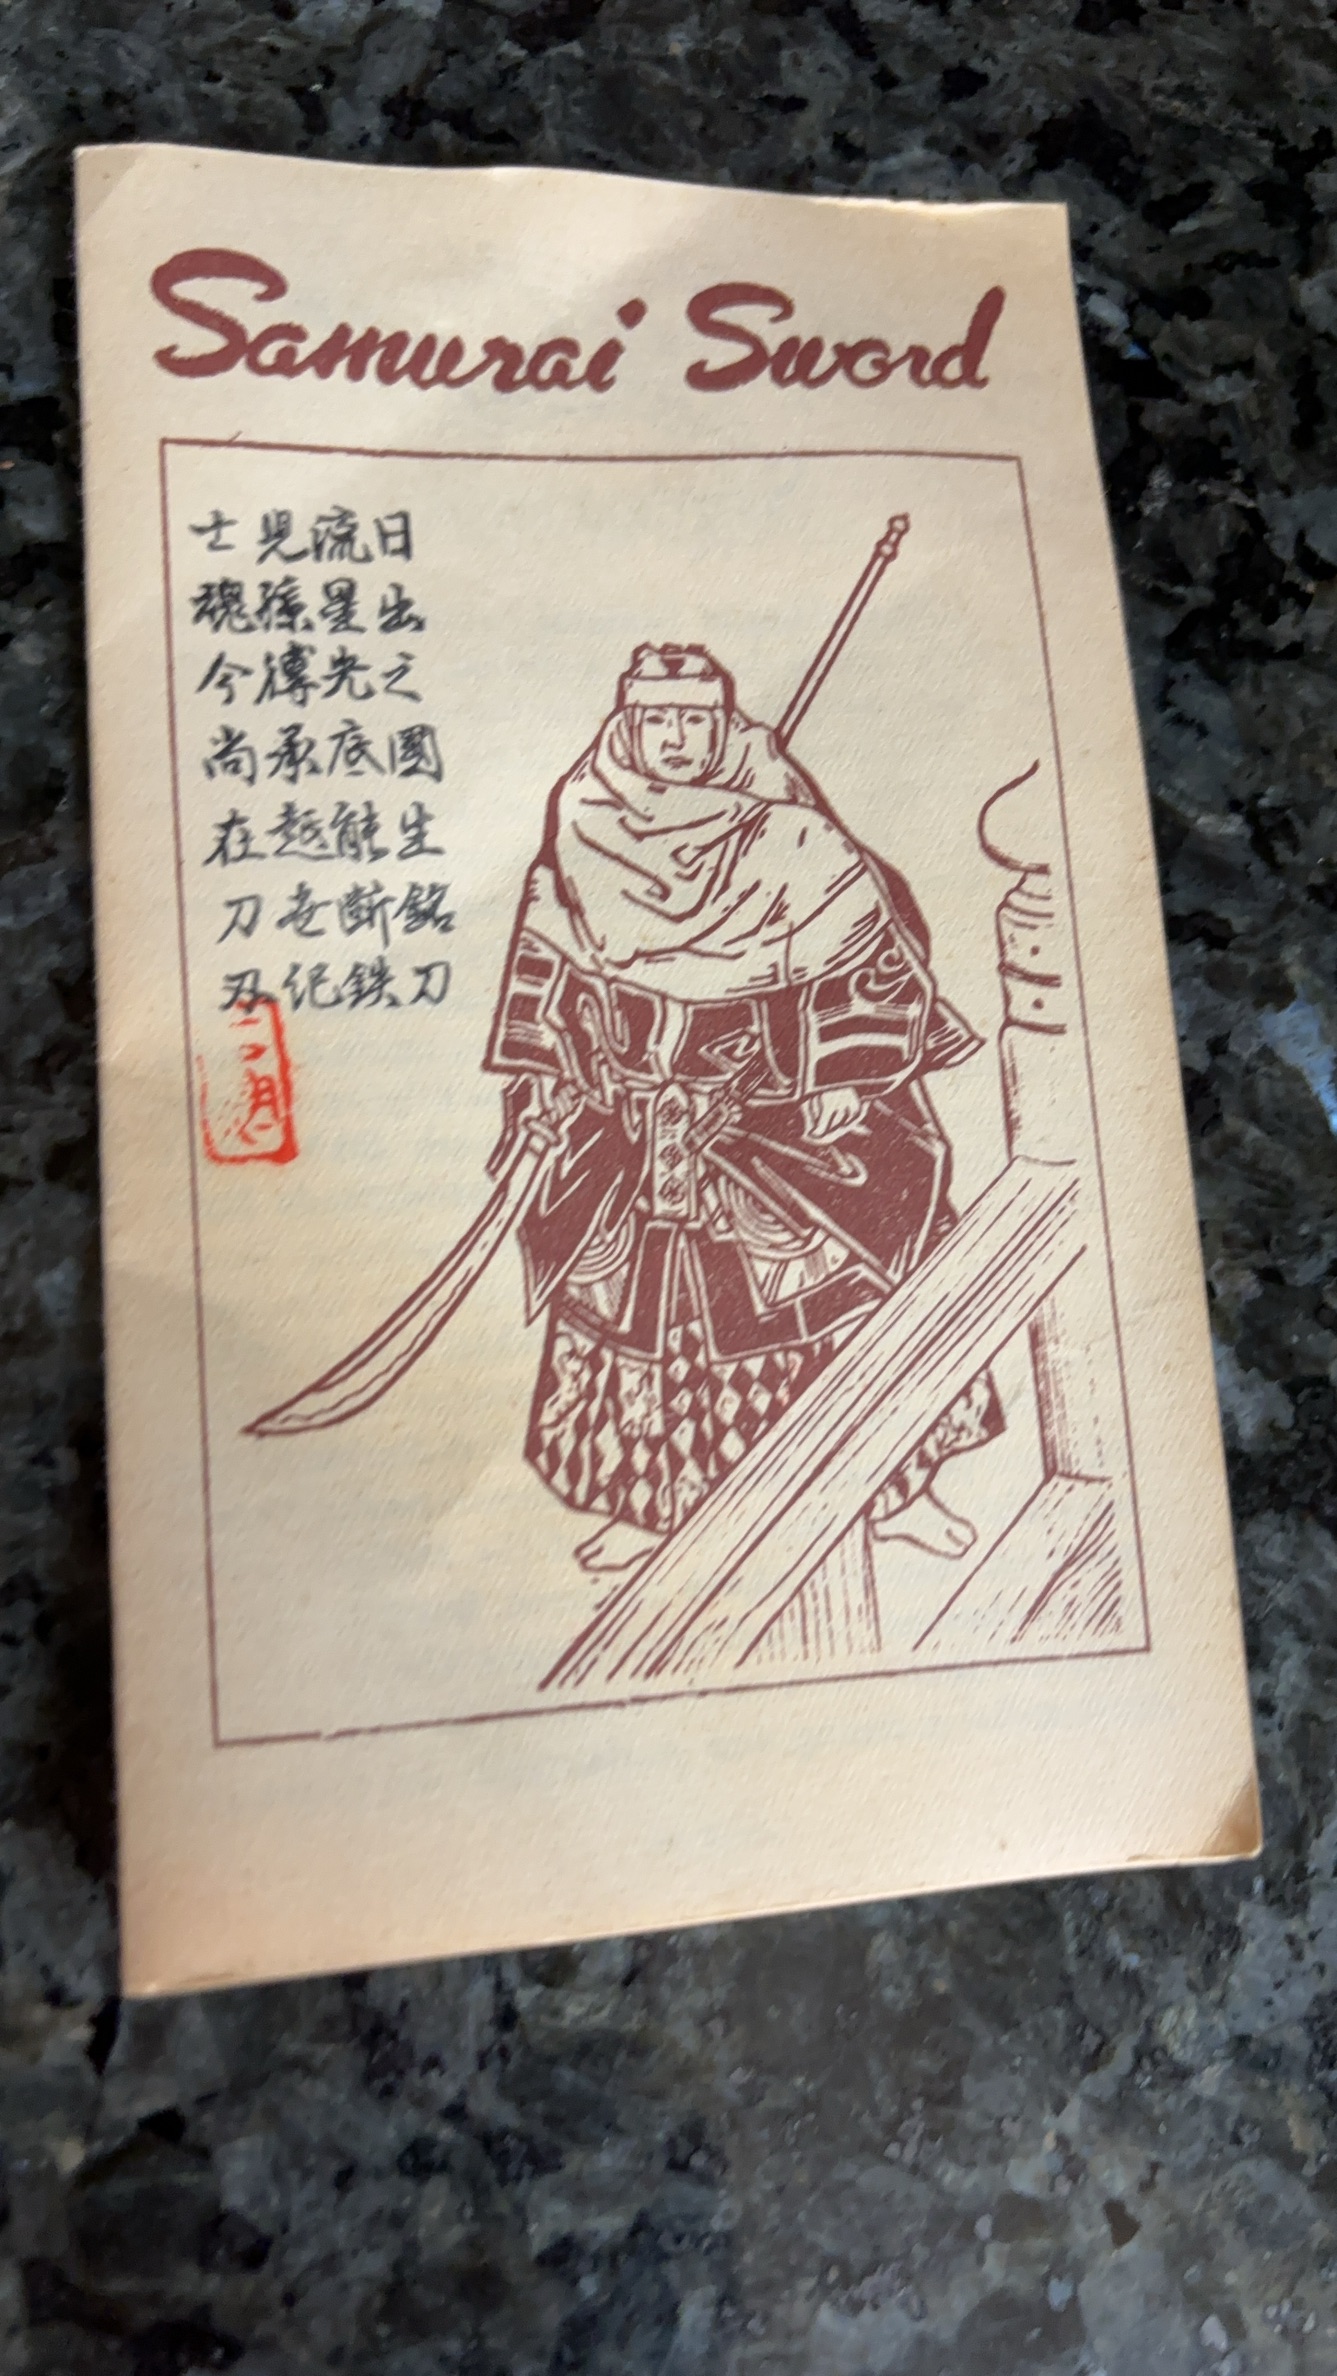 Samurai Sword
日出之國生銘刀
流星光底能斷鉄
児孫傳承越世紀
士魂今尚在刀刃